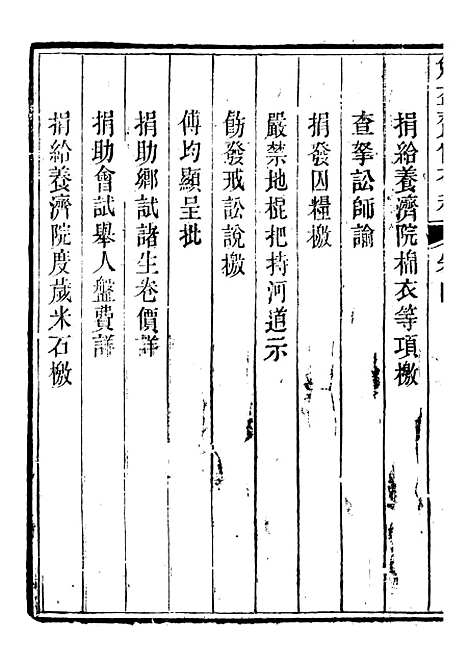 捐給養濟院棉衣等項檄
查拏訟師諭
捐發囚糧檄
嚴禁地棍把持河道示
飭發戒訟說檄
傅均顯呈批
捐助鄉試諸生卷價詳
捐助會試舉人盤費詳
捐給養濟院度歲米石檄